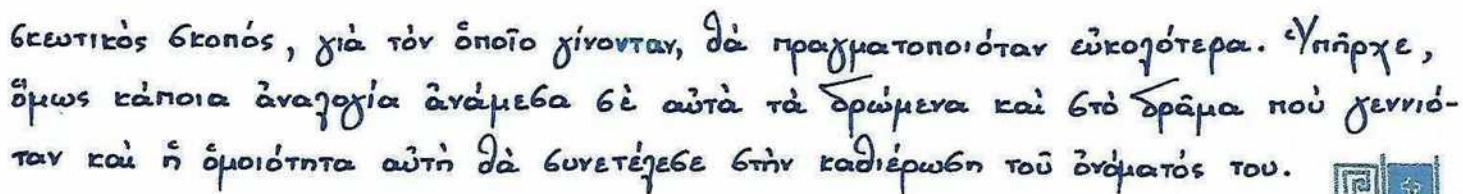 σκευτικὸς σκοπός, γιὰ τὸν ὁποῖο γίνονταν, θὰ πραγματοποιόταν εὐκολότερα. Ὑπῆρχε,
ὅμως κάποια ἀναλογία ἀνάμεσα σὲ αὐτὰ τὰ δρώμενα καὶ στὸ δρᾶμα ποὺ γεννιό-
ταν καὶ ἡ ὁμοιότητα αὐτὴ θὰ συνετέλεσε στὴν καθιέρωση τοῦ ὀνόματός του.